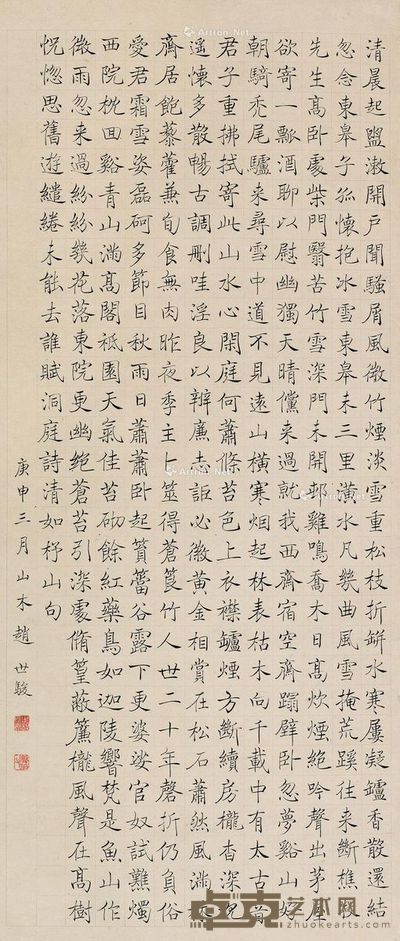 清晨起盥漱開戶聞騷屑風微竹煙淡雪重松枝折缾水寒屢凝鑪香散還結
忽念東皋子孤懷抱冰雪東皋未三里潢水凡幾曲風雪掩荒蹊往來斷樵牧
先生高卧處柴門翳苦竹雪深門未開邨雞鳴喬木日高炊煙絕吟聲出茅屋
欲寄一瓢酒聊以慰幽獨天晴儻來過就我西齋宿空齋蹋壁卧忽夢谿山好
朝騎禿尾驢來尋雪中道不見遠山橫寒烟起林表枯木向千載中有太古音
君子重拂拭寄此山水心閑庭何蕭條苔色上衣襟罏煙方斷續房櫳杳深沉
遥懷多散暢古調刪哇淫良以辨廉志詎必徽黃金相賞在松石蕭然風滿林
齋居飽藜藿兼旬食無肉昨夜季主卜筮得蒼筤竹人世二十年磬折仍負俗
愛君霜雪姿磊砢多節目秋雨日蕭蕭卧起篔簹谷露下更婆娑官奴試難燭
西院枕回谿青山滿高閣祇園天氣佳苔砌餘紅藥鳥如迦陵響梵是魚山作
微雨忽來過紛紛幾花落東院更幽絕蒼苔引深處脩篁蔽簾櫳風聲在高樹
怳惚思舊遊繾綣未能去誰賦洞庭詩清如杼山句
庚申三月山木趙世駿